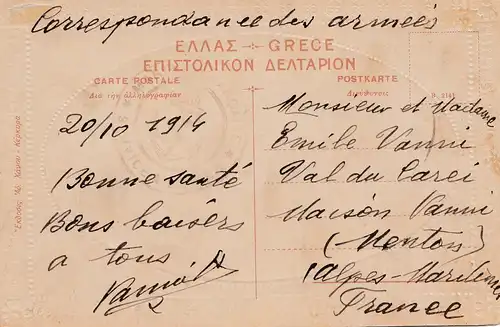 Correspondance des armées
ΕΛΛΑΣ - GRECE
ΕΠΙΣΤΟΛΙΚΟΝ ΔΕΛΤΑΡΙΟΝ
CARTE POSTALE
Διὰ τὴν ἀλληλογραφίαν
POSTKARTE
Διεύθυνσις
20/10 1914
Bonne santé
Bons baisers
a tous
Monsieur et Madame
Emile Vanni
Val du Carei
Maison Vanni
(Menton)
(Alpes-Maritimes
France